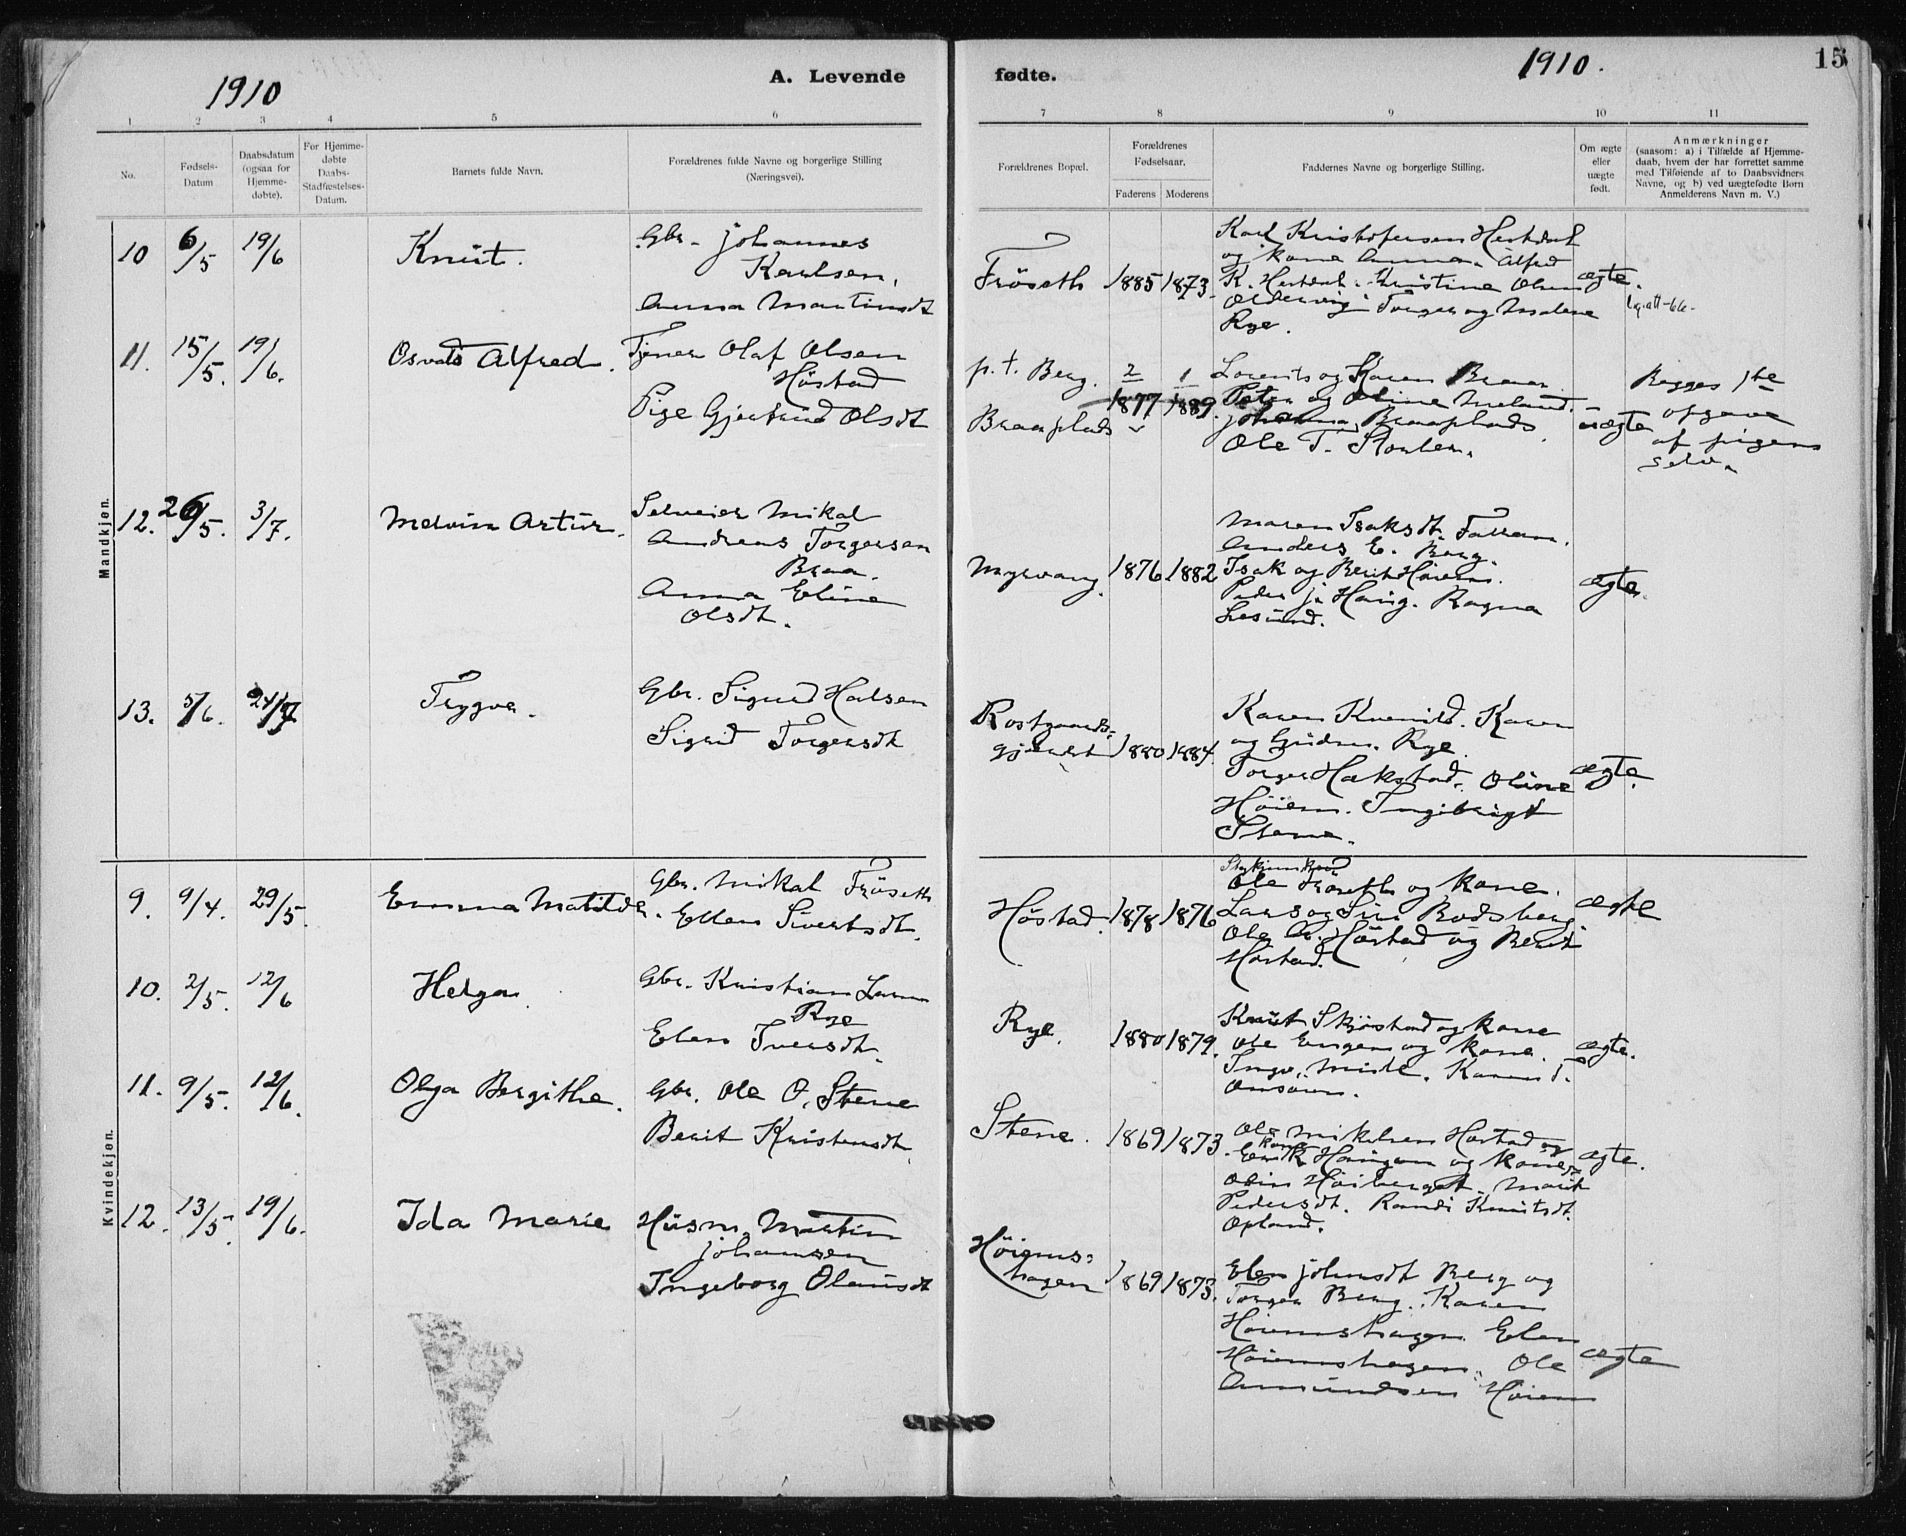 1910
A. Levende
fødte.
1910.
15
1 2 3 4 5 6 7 8 9 10 11
No.
Fødsels-
Datum
Daabsdatum
(ogsaa for
Hjemme-
døbte).
For Hjemme-
døbte
Daabs-
Stadfæstelses-
Datum.
Barnets fulde Navn.
Forældrenes fulde Navne og borgerlige Stilling
(Næringsvei).
Forældrenes Bopæl.
Forældrenes
Fødselsaar.
Faderens Moderens
Faddernes Navne og borgerlige Stilling.
Om ægte
eller
uægte
født.
Anmærkninger
(saasom: a) i Tilfælde af Hjemme-
daab, hvem der har forrettet samme
med Tilføiende af to Daabsvidners
Navne, og b) ved uægtefødte Børn
Anmelderens Navn m. V.)
Mandkjøn.
10 6/5 19/6 Knut.
Gbr. Johannes
Karlsen,
Anna Martinsdt
Fröseth 1885 1873
Karl Kristofersen
og kone Anna. Alfred
K. Kristine Olsen
Torger og Malene
Rye.
ægte.
11. 15/5. 19/6. Osvald Alfred.
Tjener Olaf Olsen
Höstad
Pige Gjertrud Olsdt
p.t. Berg.
Braaplads
2 1
1877 1889.
Lorents og Karen Braa
Peter og Oline
Johanna Braaplads.
Ole T.
uægte
Begges 1ste
opgave
af pigen
selv.
12. 26/5. 3/7. Melvin Artur.
Selveier Mikal
Andreas Torgersen
Braa.
Anna Eline
Olsdt.
Myrvang. 1876 1882
Maren Isaksdt.
Anders E. Berg.
Isak og Berit Höiem.
Peder J. Haug. Ragna
ægte.
13. 5/6. 24/7 Trygve.
Gbr. Sigurd Halsen
Sigrid Torgersdt
Rostgaards-
gjerdet 1880 1884.
Karen Kvenild. Karen
og Gudrun Rye.
Torger Hakstad. Oline
Höiem. Ingebrigt
Stene.
ægte.
Kvindekjøn.
9. 9/4. 29/5. Emma Matilde.
Gbr. Mikal Fröseth
Ellen Sivertsdt.
Höstad. 1878 1876
Ole Fröseth og kone.
Lars og Siri Bodsberg
Ole Höstad og Berit
Höstad.
ægte
10. 2/5. 12/6 Helga.
Gbr. Kristian Larsen
Rye
Elen Iversdt.
Rye. 1880 1879.
Knut Skjöstad og kone
Ole Engen og kone.
Karen T.
ægte.
11. 9/5. 12/6. Olga Bergithe.
Gbr. Ole O. Stene
Berit Kristensdt.
Stene. 1869 1873
Ole Mikelsen Höstad og
kone
Erik Haugan og kone
Odin Höiberget. Marit
Pedersdt. Randi Knutsdt.
Opland.
ægte.
12. 13/5. 19/6. Ida Marie
Husm. Martin
Johansen
Ingeborg Olausdt
Höiems-
hagen 1869 1873.
Elen Johnsdt Berg og
Torger Berg. Karen
Höiemshagen Elen
Höiemshagen. Ole
Amundsen Höiem
ægte